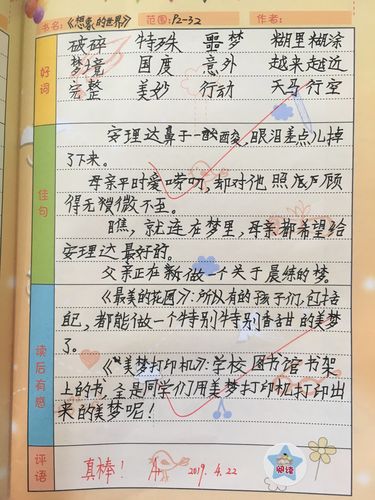 书名:《想象的世界》 范围:P2-32 作者:
好词
破碎 特殊 噩梦 糊里糊涂
梦境 国度 意外 越来越近
完整 美妙 行动 天马行空
佳句
安理达鼻子一酸,眼泪差点儿掉
了下来。
母亲平时爱唠叨,却对他照顾
得无微不至。
瞧,就连在梦里,母亲都希望给
安理达最好的。
父亲正在新做一个关于晨练的梦。
读后有感
《最美的花园》:所以有的孩子们,包括
自己,都能做一个特别特别香甜的美梦
了。
《美梦打印机》:学校图书馆书架
上的书,全是同学们用美梦打印机打印出
来的美梦呢!
评语
真棒! A 2019.4.22
阅读